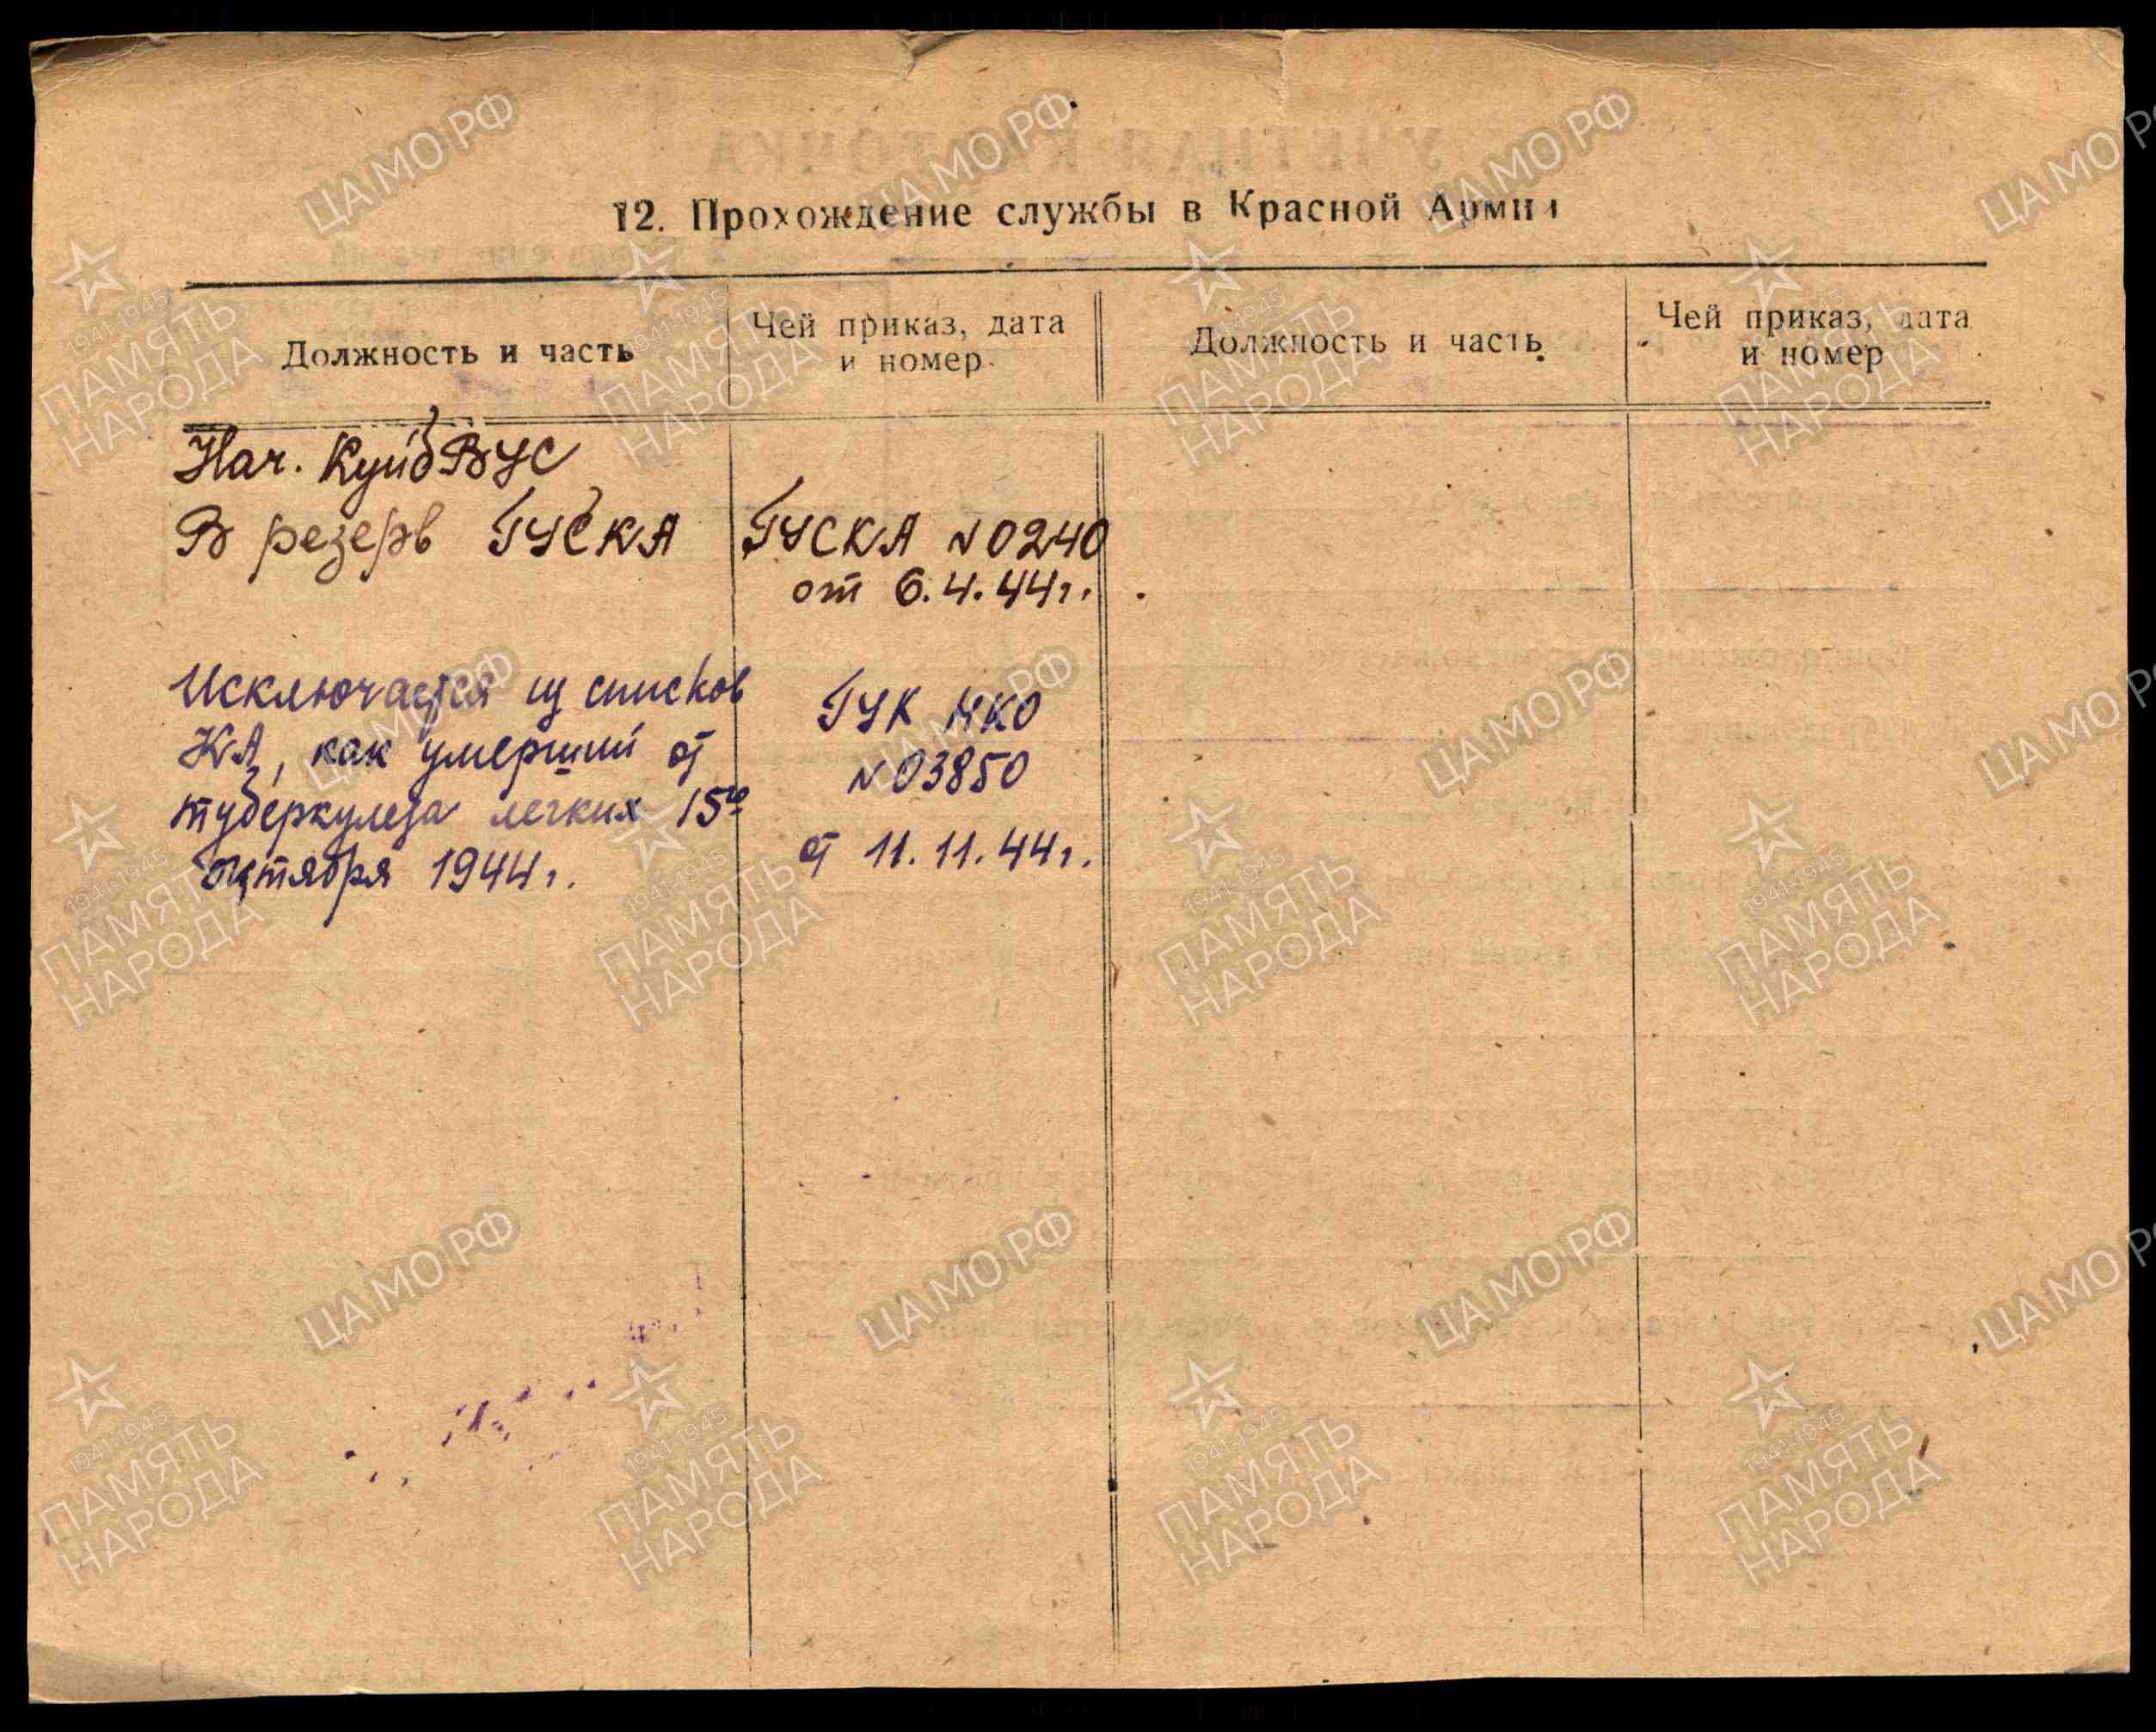 12. Прохождение службы в Красной Армии
Должность и часть
Чей приказ, дата
и номер
Должность и часть
Чей приказ, дата
и номер
Нач. КуйбВУС
В резерв ГУСКА
ГУСКА №0240
от 6.4.44г.
Исключается из списков
КА, как умерший от
туберкулеза легких 15го
октября 1944г.
ГУК НКО
№03850
от 11.11.44г.
ЦАМО РФ
1941-1945
ПАМЯТЬ
НАРОДА